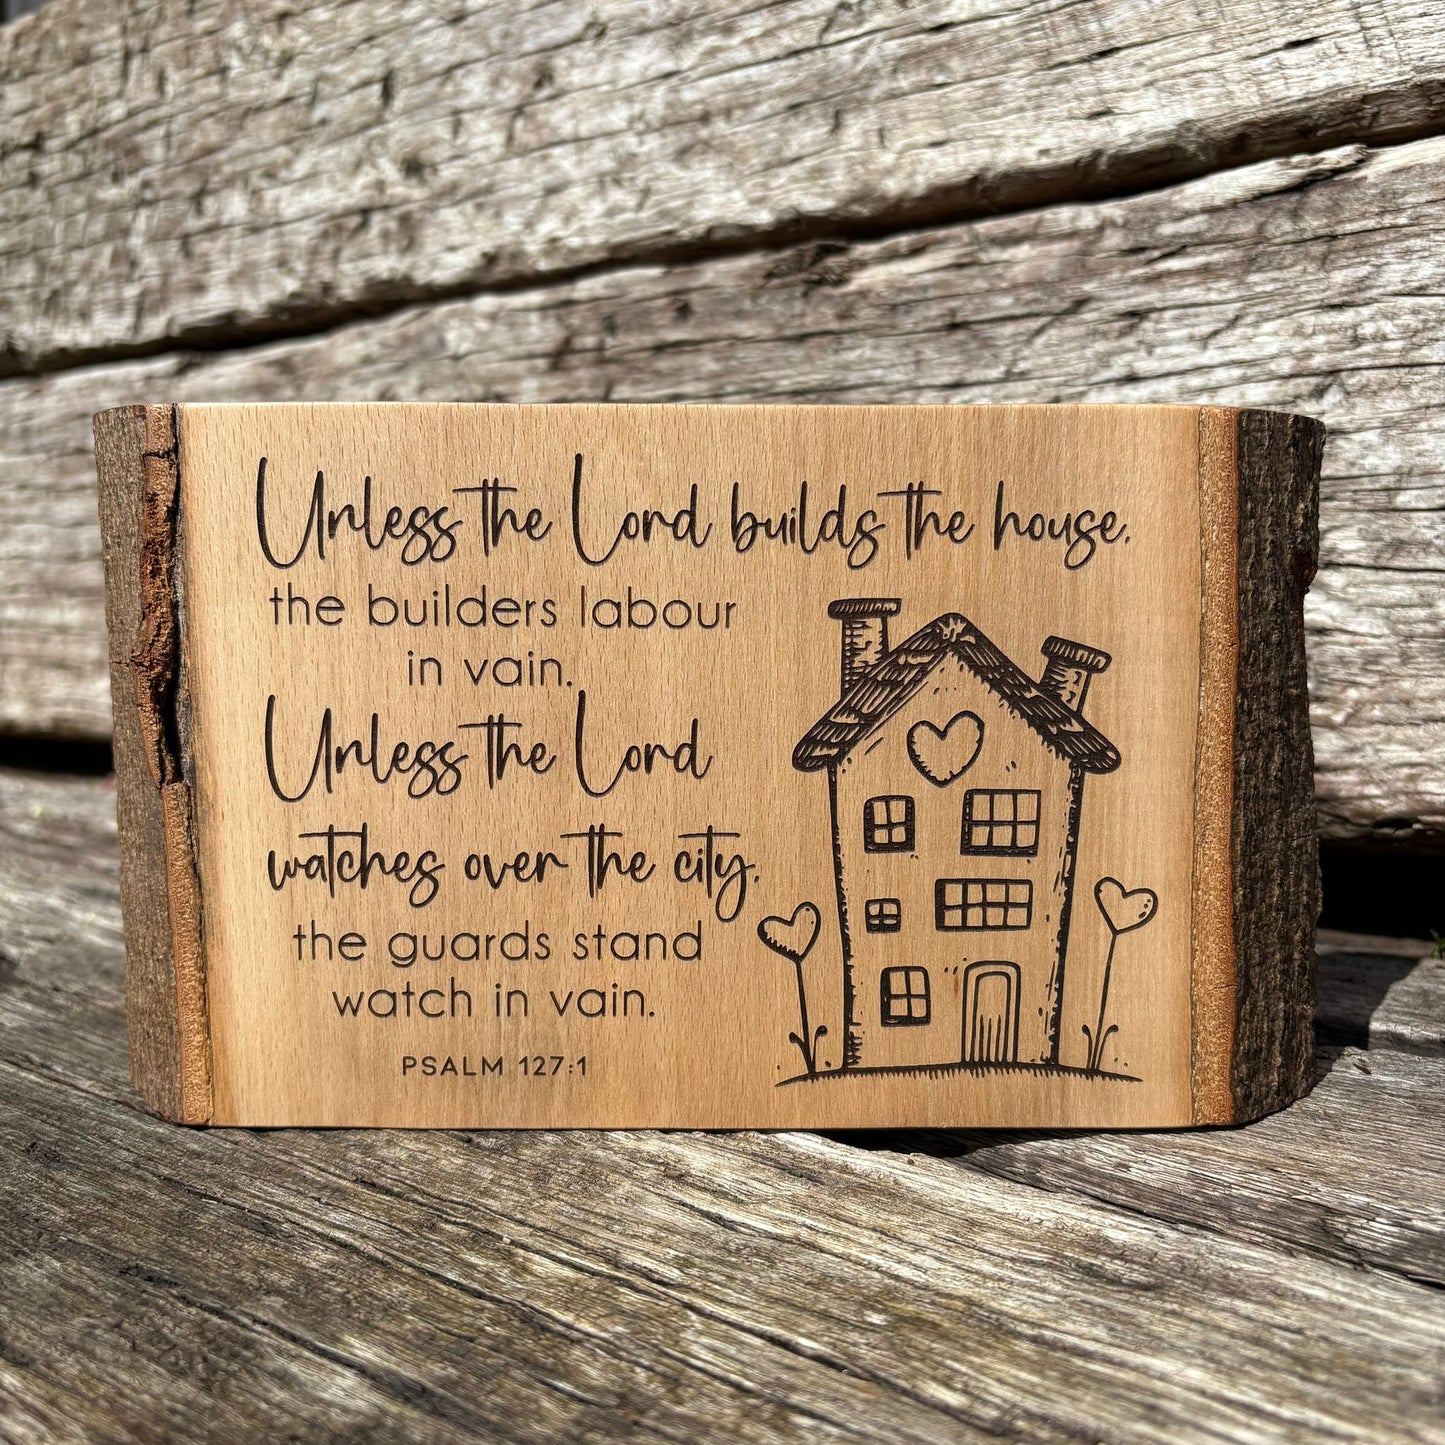 Unless the Lord builds the house,
the builders labour
in vain.
Unless the Lord
watches over the city,
the guards stand
watch in vain.
PSALM 127:1